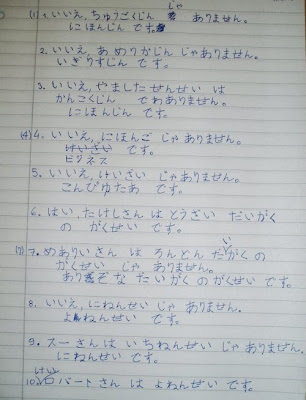 (1) 1. いいえ, ちゅうごくじん じゃ ありません。
にほんじん です。
2. いいえ, あめりかじん じゃありません。
いぎりすじん です。
3. いいえ, やましたせんせい は
かんこくじん でわありません。
にほんじん です。
(4) 4. いいえ, にほんご じゃ ありません。
けいざい です。
ビジネス
5. いいえ, けいざい じゃありません。
こんぴゅたあ です。
6. はい, たけしさん は とうざい だいがく
の がくせい です。
(7) 7. めありいさん は ろんどん だいがく の
がくせい じゃ ありません。
ありぞな だいがく の がくせい です。
8. いいえ, にねんせい じゃ ありません。
よねんせい です。
9. スーさん は いちねんせい じゃ ありません。
にねんせい です。
10. ロバートさん は よねんせい です。